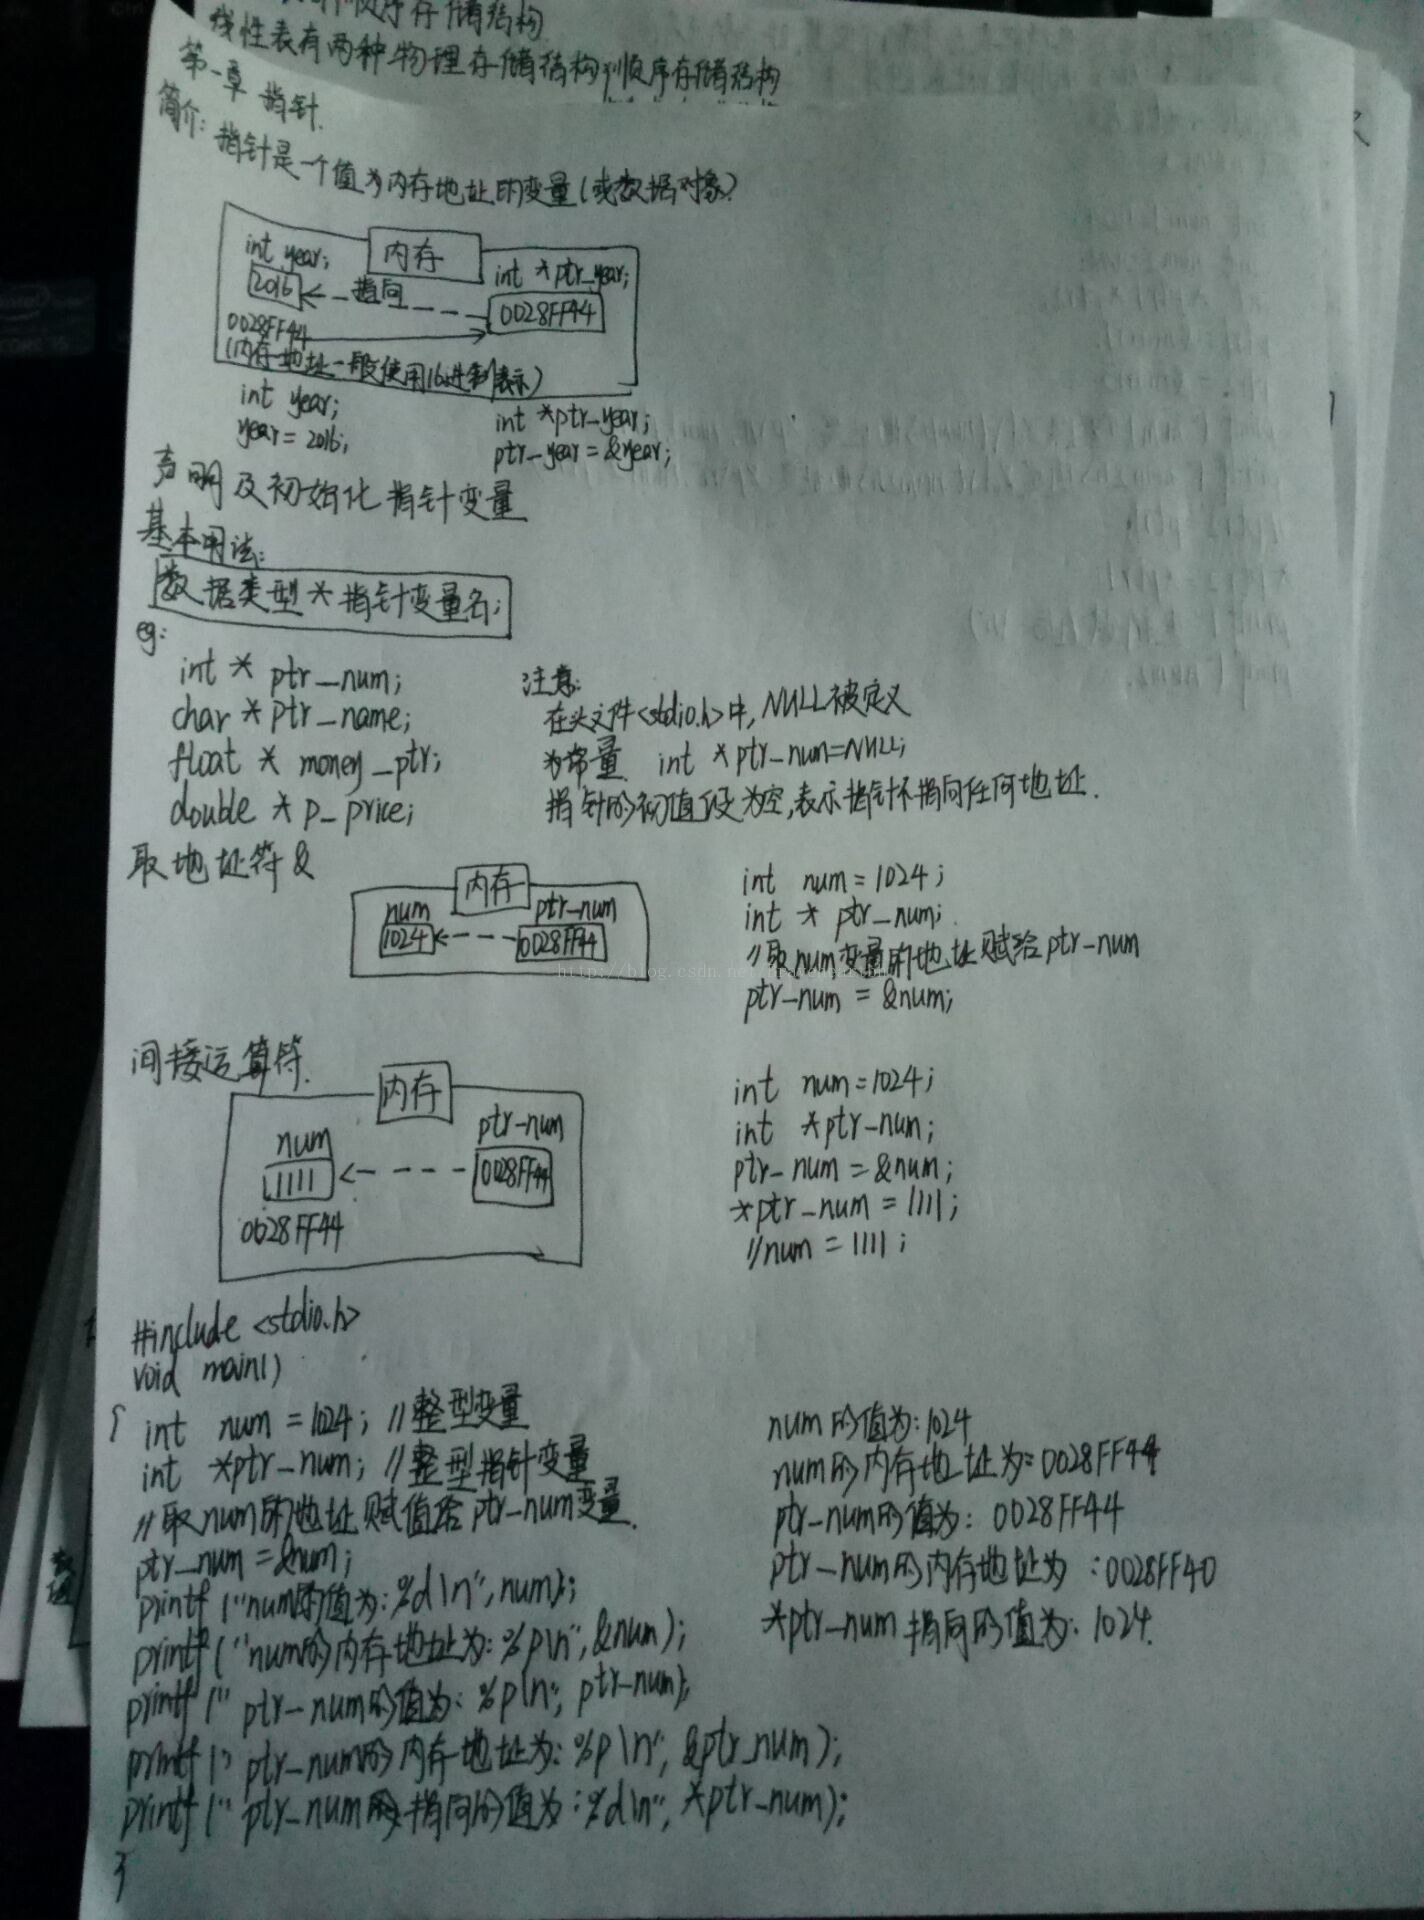 顺序存储结构
线性表有两种物理存储结构 顺序存储结构
第一章 指针.
简介: 指针是一个值为内存地址的变量(或数据对象)
内存
int year;
int *ptr_year;
2016
指向
0028FF44
0028FF44
(内存地址一般使用16进制表示)
int year;
year = 2016;
int *ptr_year;
ptr_year = &year;
声明及初始化指针变量
基本用法:
数据类型 * 指针变量名;
eg:
int * ptr_num;
char * ptr_name;
float * money_ptr;
double * p_price;
注意:
在头文件<stdio.h>中, NULL被定义
为常量. int *ptr_num=NULL;
指针的初值设为空,表示指针不指向任何地址.
取地址符 &
内存
num
ptr_num
1024
0028FF44
int num = 1024;
int * ptr_num;
//取num变量的地址赋给ptr_num
ptr_num = &num;
http://blog.csdn.net/
间接运算符.
内存
num
ptr_num
1111
0028FF44
0028FF44
int num = 1024;
int *ptr_num;
ptr_num = &num;
*ptr_num = 1111;
//num = 1111;
#include <stdio.h>
void main()
{
int num = 1024; //整型变量
int *ptr_num; //整型指针变量
//取num的地址赋值给ptr_num变量.
ptr_num = &num;
printf("num的值为:%d\n", num);
printf("num的内存地址为:%p\n", &num);
printf("ptr_num的值为:%p\n", ptr_num);
printf("ptr_num的内存地址为:%p\n", &ptr_num);
printf("ptr_num 指向的值为:%d\n", *ptr_num);
}
num的值为:1024
num的内存地址为:0028FF44
ptr_num的值为: 0028FF44
ptr_num的内存地址为 :0028FF40
*ptr_num 指向的值为: 1024.